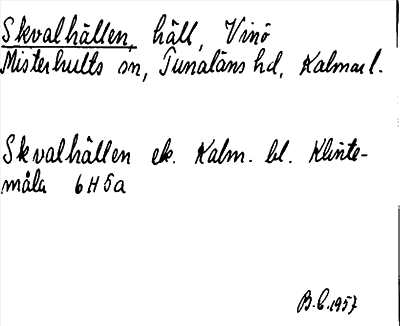 Skvalhällen, häll, Vinö
Misterhults sn, Tunaläns hd, Kalmar l.
Skvalhällen ek. Kalm. bl. Klinte-
måla 6H5a
B.C. 1957